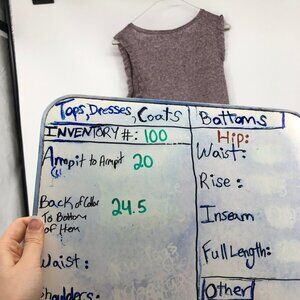 Tops, Dresses, Coats
INVENTORY #: 100
Armpit to Armpit 20
Back of Collar 24.5
To Bottom
of Item
Waist:
Shoulders:
Bottoms
Hip:
Waist:
Rise:
Inseam
Full Length:
Other